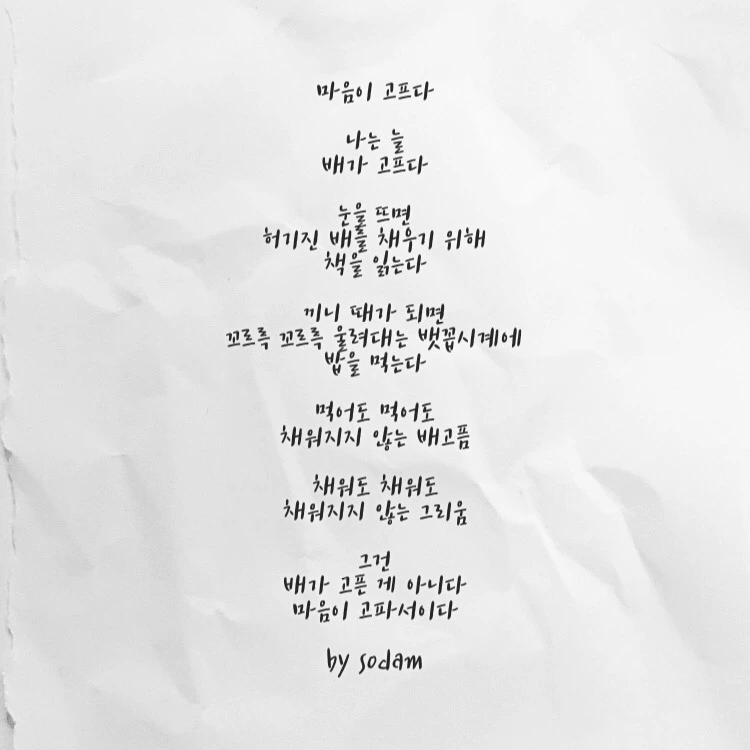 마음이 고프다
나는 늘
배가 고프다
눈을 뜨면
허기진 배를 채우기 위해
책을 읽는다
끼니 때가 되면
꼬르륵 꼬르륵 울려대는 뱃꼽시계에
밥을 먹는다
먹어도 먹어도
채워지지 않는 배고픔
채워도 채워도
채워지지 않는 그리움
그건
배가 고픈 게 아니다
마음이 고파서이다
by sodam